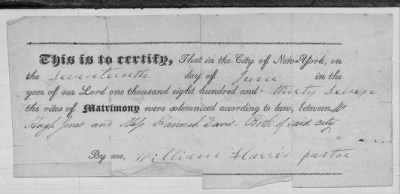 This is to certify, That in the City of New-York, on
the Seventeenth day of June in the
year of our Lord one thousand eight hundred and thirty Seven
the rites of Matrimony were solemnized according to law, between Mr
Hugh Jones and Miss Hannah David Both of said city
By me, William Harris pastor